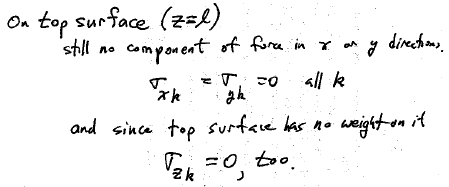 On top surface (z=l)
still no component of force in x or y directions.
σxk = σyk =0 all k
and since top surface has no weight on it
σzk =0, too.